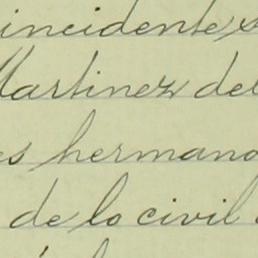 incidentes
Martinez del
es hermano
de lo civil